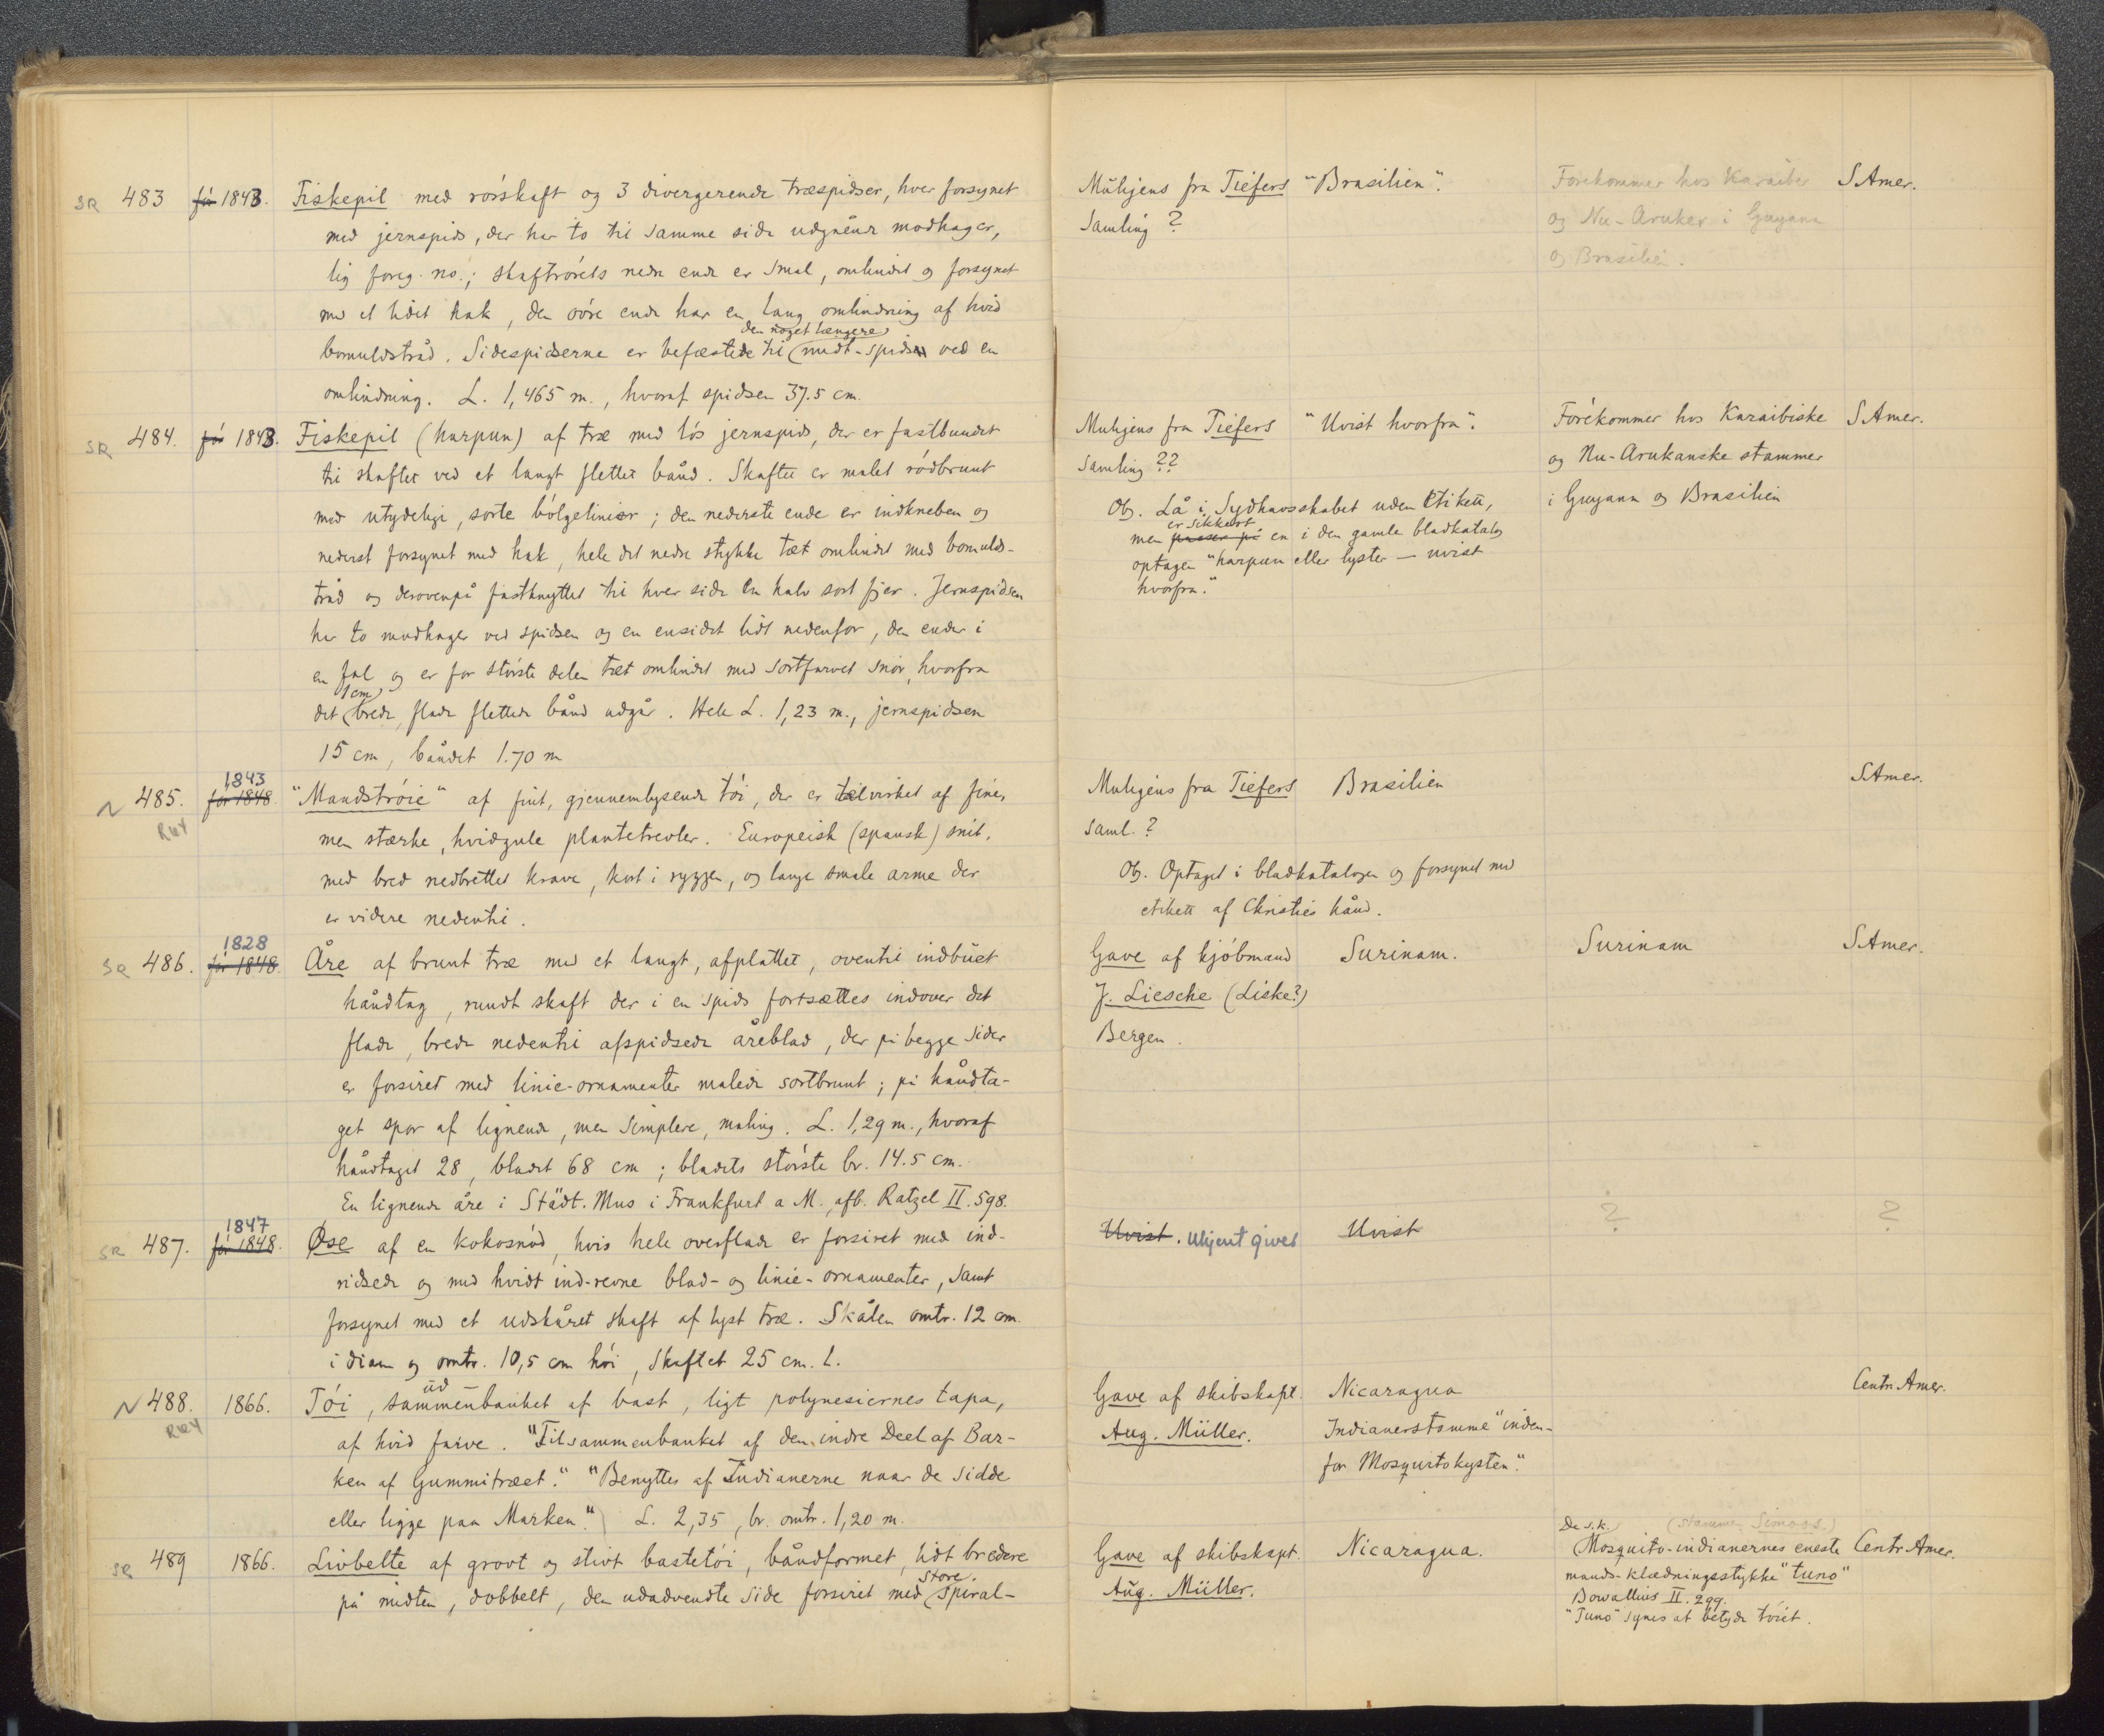 SR 483 før 1843. Fiskepil med rørskaft og 3 divergerende træspidser, hver forsynet
med jernspids, der har to til samme side udgående modhager,
lig foreg. no.; skaftrørets nedre ende er smal, omlindet og forsynet
med et lidet hak, den øvre ende har en lang omlindring af hvid
den noget længere
bomuldstråd. Sidespidserne er befæstede til midt-spidsen ved en
omlindring. L. 1,465 m., hvoraf spidsen 37.5 cm.
Muligens fra Tiefers
Samling?
"Brasilien".
Forekommer hos Karaiber
og Nu-Aruker i Guyana
og Brasilien.
S.Amer.
SR 484. før 1843. Fiskepil (harpun) af træ med løs jernspids, der er fastbundet
til skaftet ved et langt flettet bånd. Skaftet er malet rødbrunt
med utydelige, sorte bølgelinier; den nederste ende er indkneben og
nederst forsynet med hak, hele det nedre stykke tæt omlindet med bomulds-
tråd og derovenpå fastknyttet til hver side en halv sort fjer. Jernspidsen
har to modhager ved spidsen og en ensidet lidt nedenfor, den ender i
en fal og er for største delen tæt omlindet med sortfarvet snor, hvorfra
1 cm
det brede, flade flettede bånd udgår. Hele L. 1,23 m., jernspidsen
15 cm, båndet 1.70 m
Muligens fra Tiefers
Samling??
"Uvist hvorfra".
Obs. Lå i Sydhavsskabet uden Etikett,
er sikkert
men passer på en i den gamle bladkatalog
optagen "harpun eller lyster — uvist
hvorfra."
Forekommer hos Karaibiske
og Nu-Arukanske stammer
i Guyana og Brasilien
S.Amer.
1843
N 485. før 1848. "Mandstrøie" af fint, gjennemlysende tøi, der er tilvirket af fine,
men stærke, hvidgule plantetrevler. Europeisk (spansk) snit,
med bred nedbrettet krave, kort i ryggen, og lange smale arme der
er videre nedentil.
Muligens fra Tiefers
saml.?
Brasilien
Obs. Optaget i bladkatalogen og forsynet med
etikett af Christies hånd.
S.Amer.
1828
SR 486. før 1848. Åre af brunt træ med et langt, afplattet, oventil indbuet
håndtag, rundt skaft der i en spids fortsættes indover det
flade, brede nedentil afspidsede åreblad, der på begge sider
er forsiret med linie-ornamenter malede sortbrunt; på håndta-
get spor af lignende, men simplere, maling. L. 1,29 m., hvoraf
håndtaget 28, bladet 68 cm; bladets største br. 14.5 cm.
En lignende åre i Städt. Mus i Frankfurt a M., afb. Ratzel II. 598.
Gave af kjøbmand
J. Liesche (Liske?)
Bergen.
Surinam.
Surinam
S.Amer.
1847
SR 487. før 1848. Øse af en kokosnød, hvis hele overflade er forsiret med ind-
ridsede og med hvidt ind-revne blad- og linie-ornamenter, samt
forsynet med et udskåret skaft af lyst træ. Skålen omtr. 12 cm.
i diam og omtr. 10,5 cm høi, skaftet 25 cm. l.
Uvist. Ukjent giver
Uvist
?
?
N 488. 1866. Tøi, sammenbanket af bast, ligt polynesiernes tapa,
ud
af hvid farve. "Tilsammenbanket af den indre Deel af Bar-
ken af Gummitræet." "Benyttes af Indianerne naar de sidde
eller ligge paa Marken." L. 2,35, br. omtr. 1,20 m.
Gave af skibskapt.
Aug. Müller.
Nicaragua
Indianerstamme "inden-
for Mosquitokysten".
Centr. Amer.
SR 489 1866. Livbelte af grovt og stivt bastetøi, båndformet, lidt bredere
store
på midten, dobbelt, den udadvendte side forsiret med spiral-
Gave af skibskapt.
Aug. Müller.
Nicaragua.
De s.k. (stammen Simoos.)
Mosquito-indianernes eneste
mands-klædningsstykke "tuno"
Bovallius II. 299.
"Tuno" synes at betyde tøiet.
Centr. Amer.